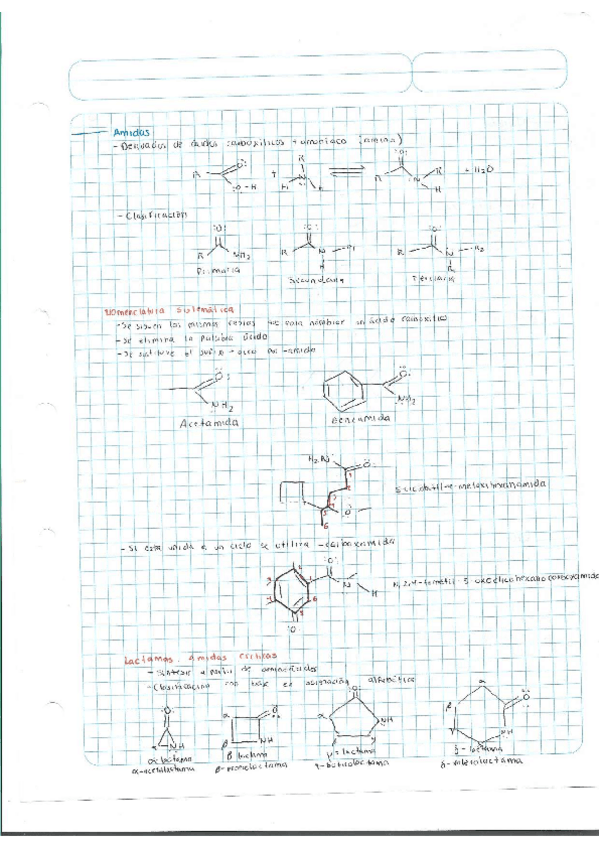 Amidas
- Derivados de ácidos carboxílicos + amoniaco (amina)
R O: O-H + R N H H R :O: N R H + H2O
- Clasificación
:O: R NH2
:O: R N H
:O: R N R
Primaria
Secundaria
Terciaria
Nomenclatura sistemática
- Se siguen las mismas reglas que para nombrar un ácido carboxílico
- Se elimina la palabra ácido
- Se sustituye el sufijo -oico por -amida
O: NH2
O: NH2
Acetamida
Benzamida
H2N O:
5-ciclobutil-5-metoxihexanamida
- Si está unida a un ciclo se utiliza -carboxamida
:O: N H
:O
Lactamas, amidas cíclicas
- Síntesis a partir de aminoácidos
- Clasificación con base en asignación alfabética
α NH
α β NH
α β γ NH
α β NH
α-lactama
β-lactama
γ-lactama
α-acetolactama
β-
γ-butirolactama
δ-valerolactama